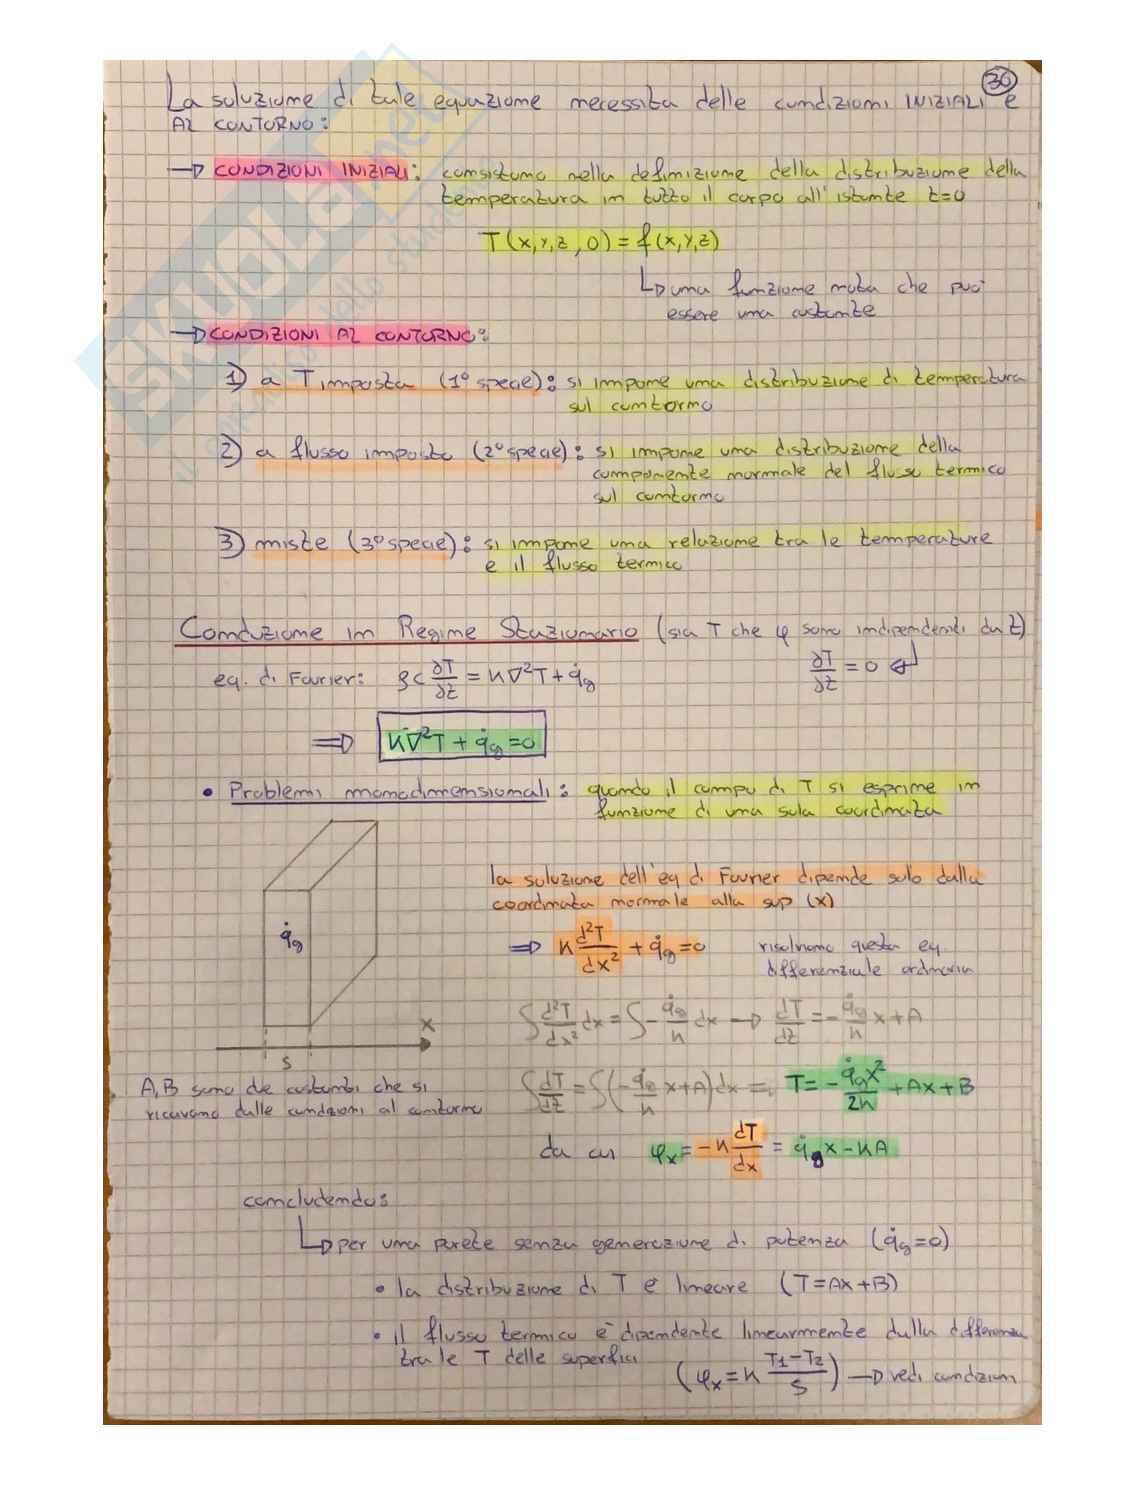 30
La soluzione di tale equazione necessita delle condizioni INIZIALI e
AL CONTORNO:
→ CONDIZIONI INIZIALI: consistono nella definizione della distribuzione della
temperatura in tutto il corpo all'istante t=0
T(x,y,z,0) = f(x,y,z)
↳ una funzione nota che può
essere una costante
→ CONDIZIONI AL CONTORNO:
1) a T imposta (1° specie): si impone una distribuzione di temperatura
sul contorno
2) a flusso imposto (2° specie): si impone una distribuzione della
componente normale del flusso termico
sul contorno
3) miste (3° specie): si impone una relazione tra le temperature
e il flusso termico
Conduzione in Regime Stazionario (sia T che φ sono indipendenti da t)
eq. di Fourier: ρc ∂T/∂t = k∇²T + q̇g
∂T/∂t = 0 ↵
⇒ k∇²T + q̇g = 0
• Problemi monodimensionali: quando il campo di T si esprime in
funzione di una sola coordinata
la soluzione dell'eq di Fourier dipende solo dalla
coordinata normale alla sup (x)
q̇g
⇒ k d²T/dx² + q̇g = 0 risolviamo questa eq
differenziale ordinaria
∫ d²T/dx² dx = ∫ - q̇g/k dx → dT/dt = - q̇g/k x + A
x
s
A, B sono due costanti che si
ricavano dalle condizioni al contorno
∫ dT/dt = ∫ (- q̇g/k x + A) dx = T = - q̇g x²/2k + Ax + B
da cui φx = - k dT/dx = q̇g x - kA
concludendo:
↳ per una parete senza generazione di potenza (q̇g = 0)
• la distribuzione di T è lineare (T = Ax + B)
• il flusso termico è dipendente linearmente dalla differenza
tra le T delle superfici
(φx = k T1 - T2/s) → vedi condizioni
SKUOLA.net